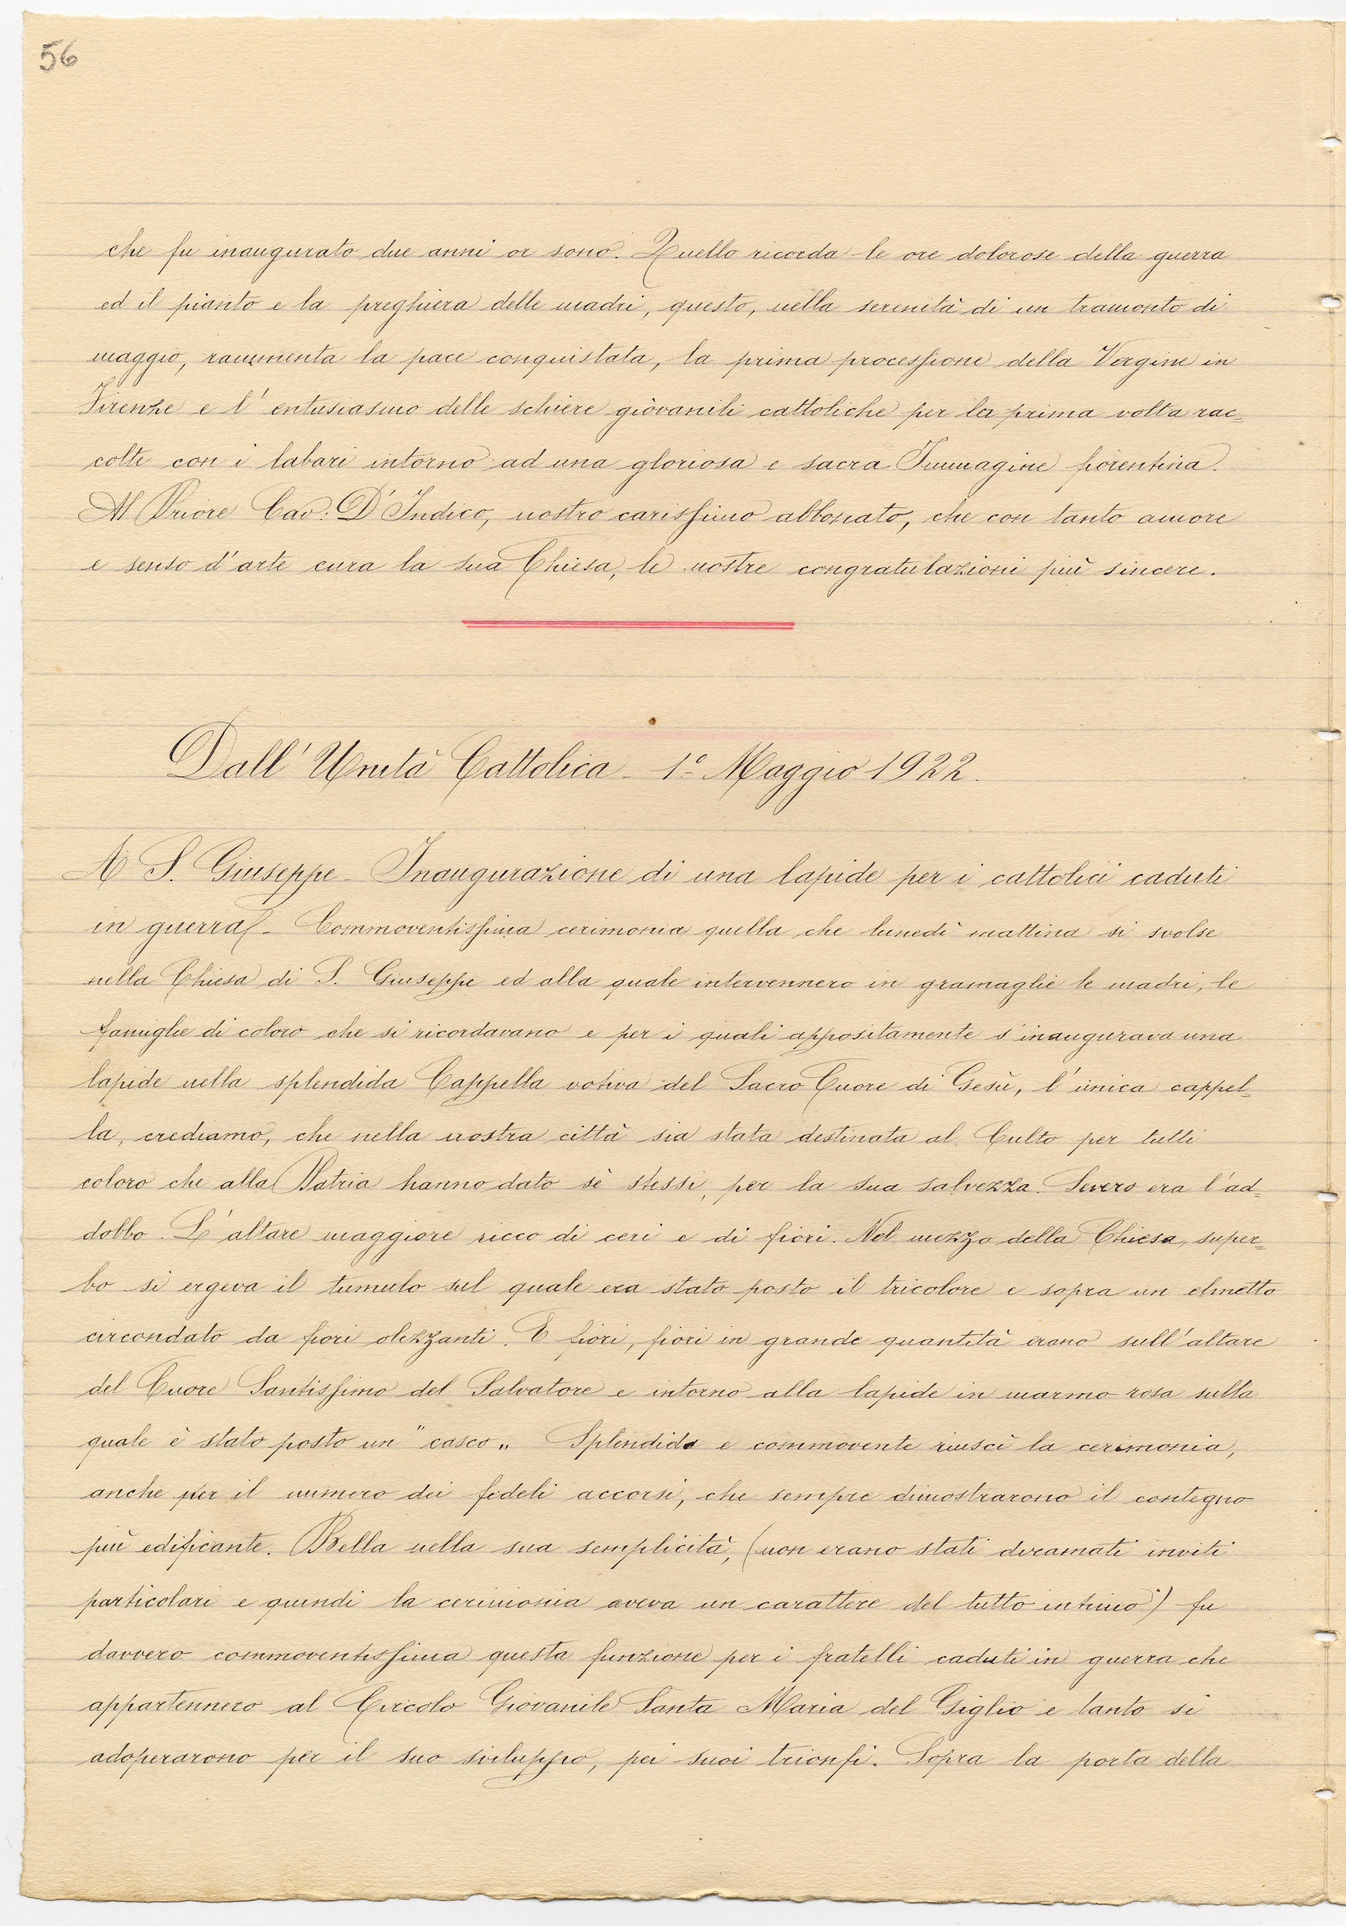 56
che fu inaugurato due anni or sono. Quello ricorda le ore dolorose della guerra
ed il pianto e la preghiera delle madri, questo, nella serenità di un tramonto di
maggio, rammenta la pace conquistata, la prima processione della Vergine in
Firenze e l'entusiasmo delle schiere giovanili cattoliche per la prima volta rac=
colte con i labari intorno ad una gloriosa e sacra Immagine fiorentina.
Al Priore Cav: D'Indico, nostro carissimo abbonato, che con tanto amore
e senso d'arte cura la sua Chiesa, le nostre congratulazioni più sincere.
Dall'Unità Cattolica - 1º Maggio 1922.
A S. Giuseppe - Inaugurazione di una lapide per i cattolici caduti
in guerra - Commoventissima cerimonia quella che lunedì mattina si svolse
nella Chiesa di S. Giuseppe ed alla quale intervennero in gramaglie le madri, le
famiglie di coloro che si ricordavano e per i quali appositamente s'inaugurava una
lapide nella splendida Cappella votiva del Sacro Cuore di Gesù, l'unica cappel=
la, crediamo, che nella nostra città sia stata destinata al Culto per tutti
coloro che alla Patria hanno dato sè stessi, per la sua salvezza. Severo era l'ad=
dobbo. L'altare maggiore ricco di ceri e di fiori. Nel mezzo della Chiesa, super=
bo si ergeva il tumulo sul quale era stato posto il tricolore e sopra un elmetto
circondato da fiori olezzanti. E fiori, fiori in grande quantità erano sull'altare
del Cuore Santissimo del Salvatore e intorno alla lapide in marmo rosa sulla
quale è stato posto un "casco„ Splendida e commovente riuscì la cerimonia,
anche per il numero dei fedeli accorsi, che sempre dimostrarono il contegno
più edificante. Bella nella sua semplicità, (non erano stati diramati inviti
particolari e quindi la cerimonia aveva un carattere del tutto intimo) fu
davvero commoventissima questa funzione per i fratelli caduti in guerra che
appartennero al Circolo Giovanile Santa Maria del Giglio e tanto si
adoperarono per il suo sviluppo, pei suoi trionfi. Sopra la porta della